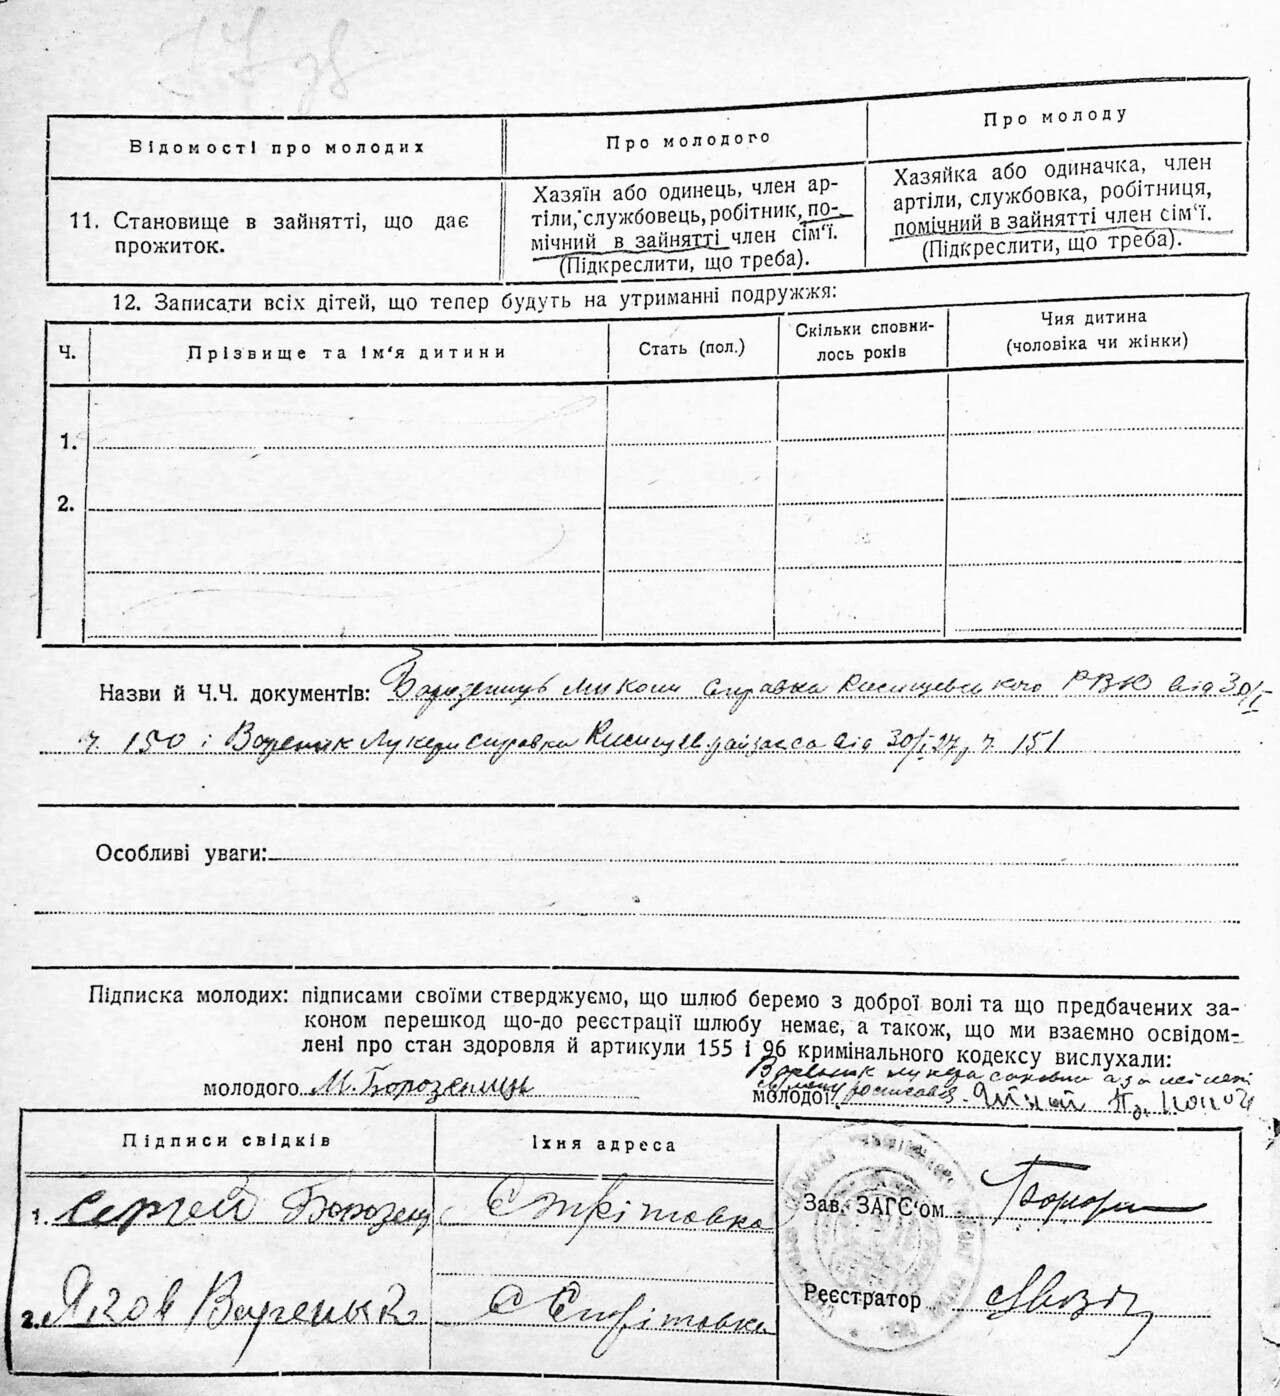 Відомості про молодих
Про молодого
Про молоду
11. Становище в зайнятті, що дає
прожиток.
Хазяїн або одинець, член ар-
тіли, службовець, робітник, по-
мічний в зайнятті член сім'ї.
(Підкреслити, що треба).
Хазяйка або одиначка, член
артіли, службовка, робітниця,
помічний в зайнятті член сім'ї.
(Підкреслити, що треба).
12. Записати всіх дітей, що тепер будуть на утриманні подружжя:
Ч.
Прізвище та ім'я дитини
Стать (пол.)
Скільки сповни-
лось років
Чия дитина
(чоловіка чи жінки)
1.
2.
Назви й Ч.Ч. документів: Миколи справка РВК від 30/I
ч. 150 і Вареник Лукери справка від 30/I 27 ч. 151
Особливі уваги:
Підписка молодих: підписами своїми стверджуємо, що шлюб беремо з доброї волі та що предбачених за-
коном перешкод що-до реєстрації шлюбу немає, а також, що ми взаємно освідом-
лені про стан здоровля й артикули 155 і 96 кримінального кодексу вислухали:
Вареник Лукера а за неї
молодого М. Борозенець
молодої
Підписи свідків
Їхня адреса
1. Сергей Борозенц
С Єпфітовка
Зав. ЗАГС'ом
2. Яков Вареник
С Єпфітовка
Реєстратор